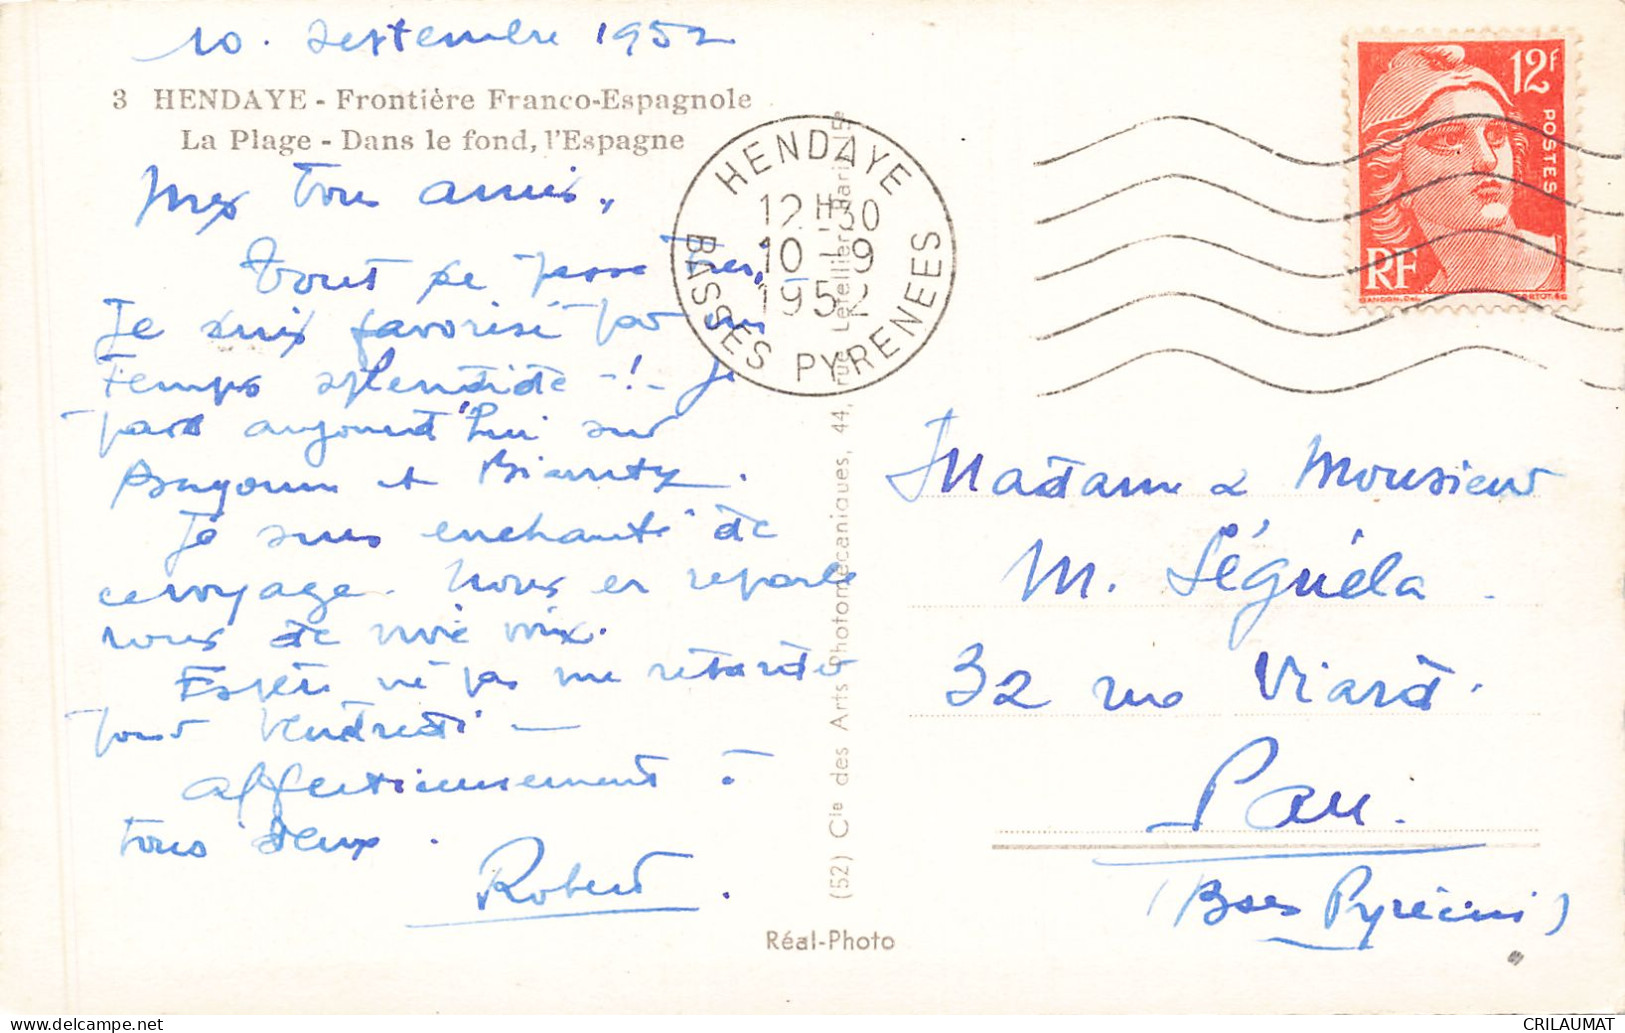 10. Septembre 1952
3 HENDAYE - Frontière Franco-Espagnole
La Plage - Dans le fond, l'Espagne
Mes bons amis,
Tout se passe bien,
Je suis favorisé par un
temps splendide -!- Je
pars aujourd'hui sur
Bayonne et Biarritz.
Je suis enchanté de
ce voyage. Nous en reparle
rons de vive voix.
Espère ne pas me retarder
pour Vendredi -
affectueusement à
tous deux.
Robert.
HENDAYE
12H30
10-9
1952
BASSES PYRENEES
12F
POSTES
RF
GANDON. DEL.
CORTOT. SC
(52) Cie des Arts Photomécaniques, 44, rue Letellier, Paris-15e
Réal-Photo
Madame & Monsieur
M. Séguéla.
32 rue Viard.
Pau.
(Bses Pyrénées)
delcampe.net
CRILAUMAT